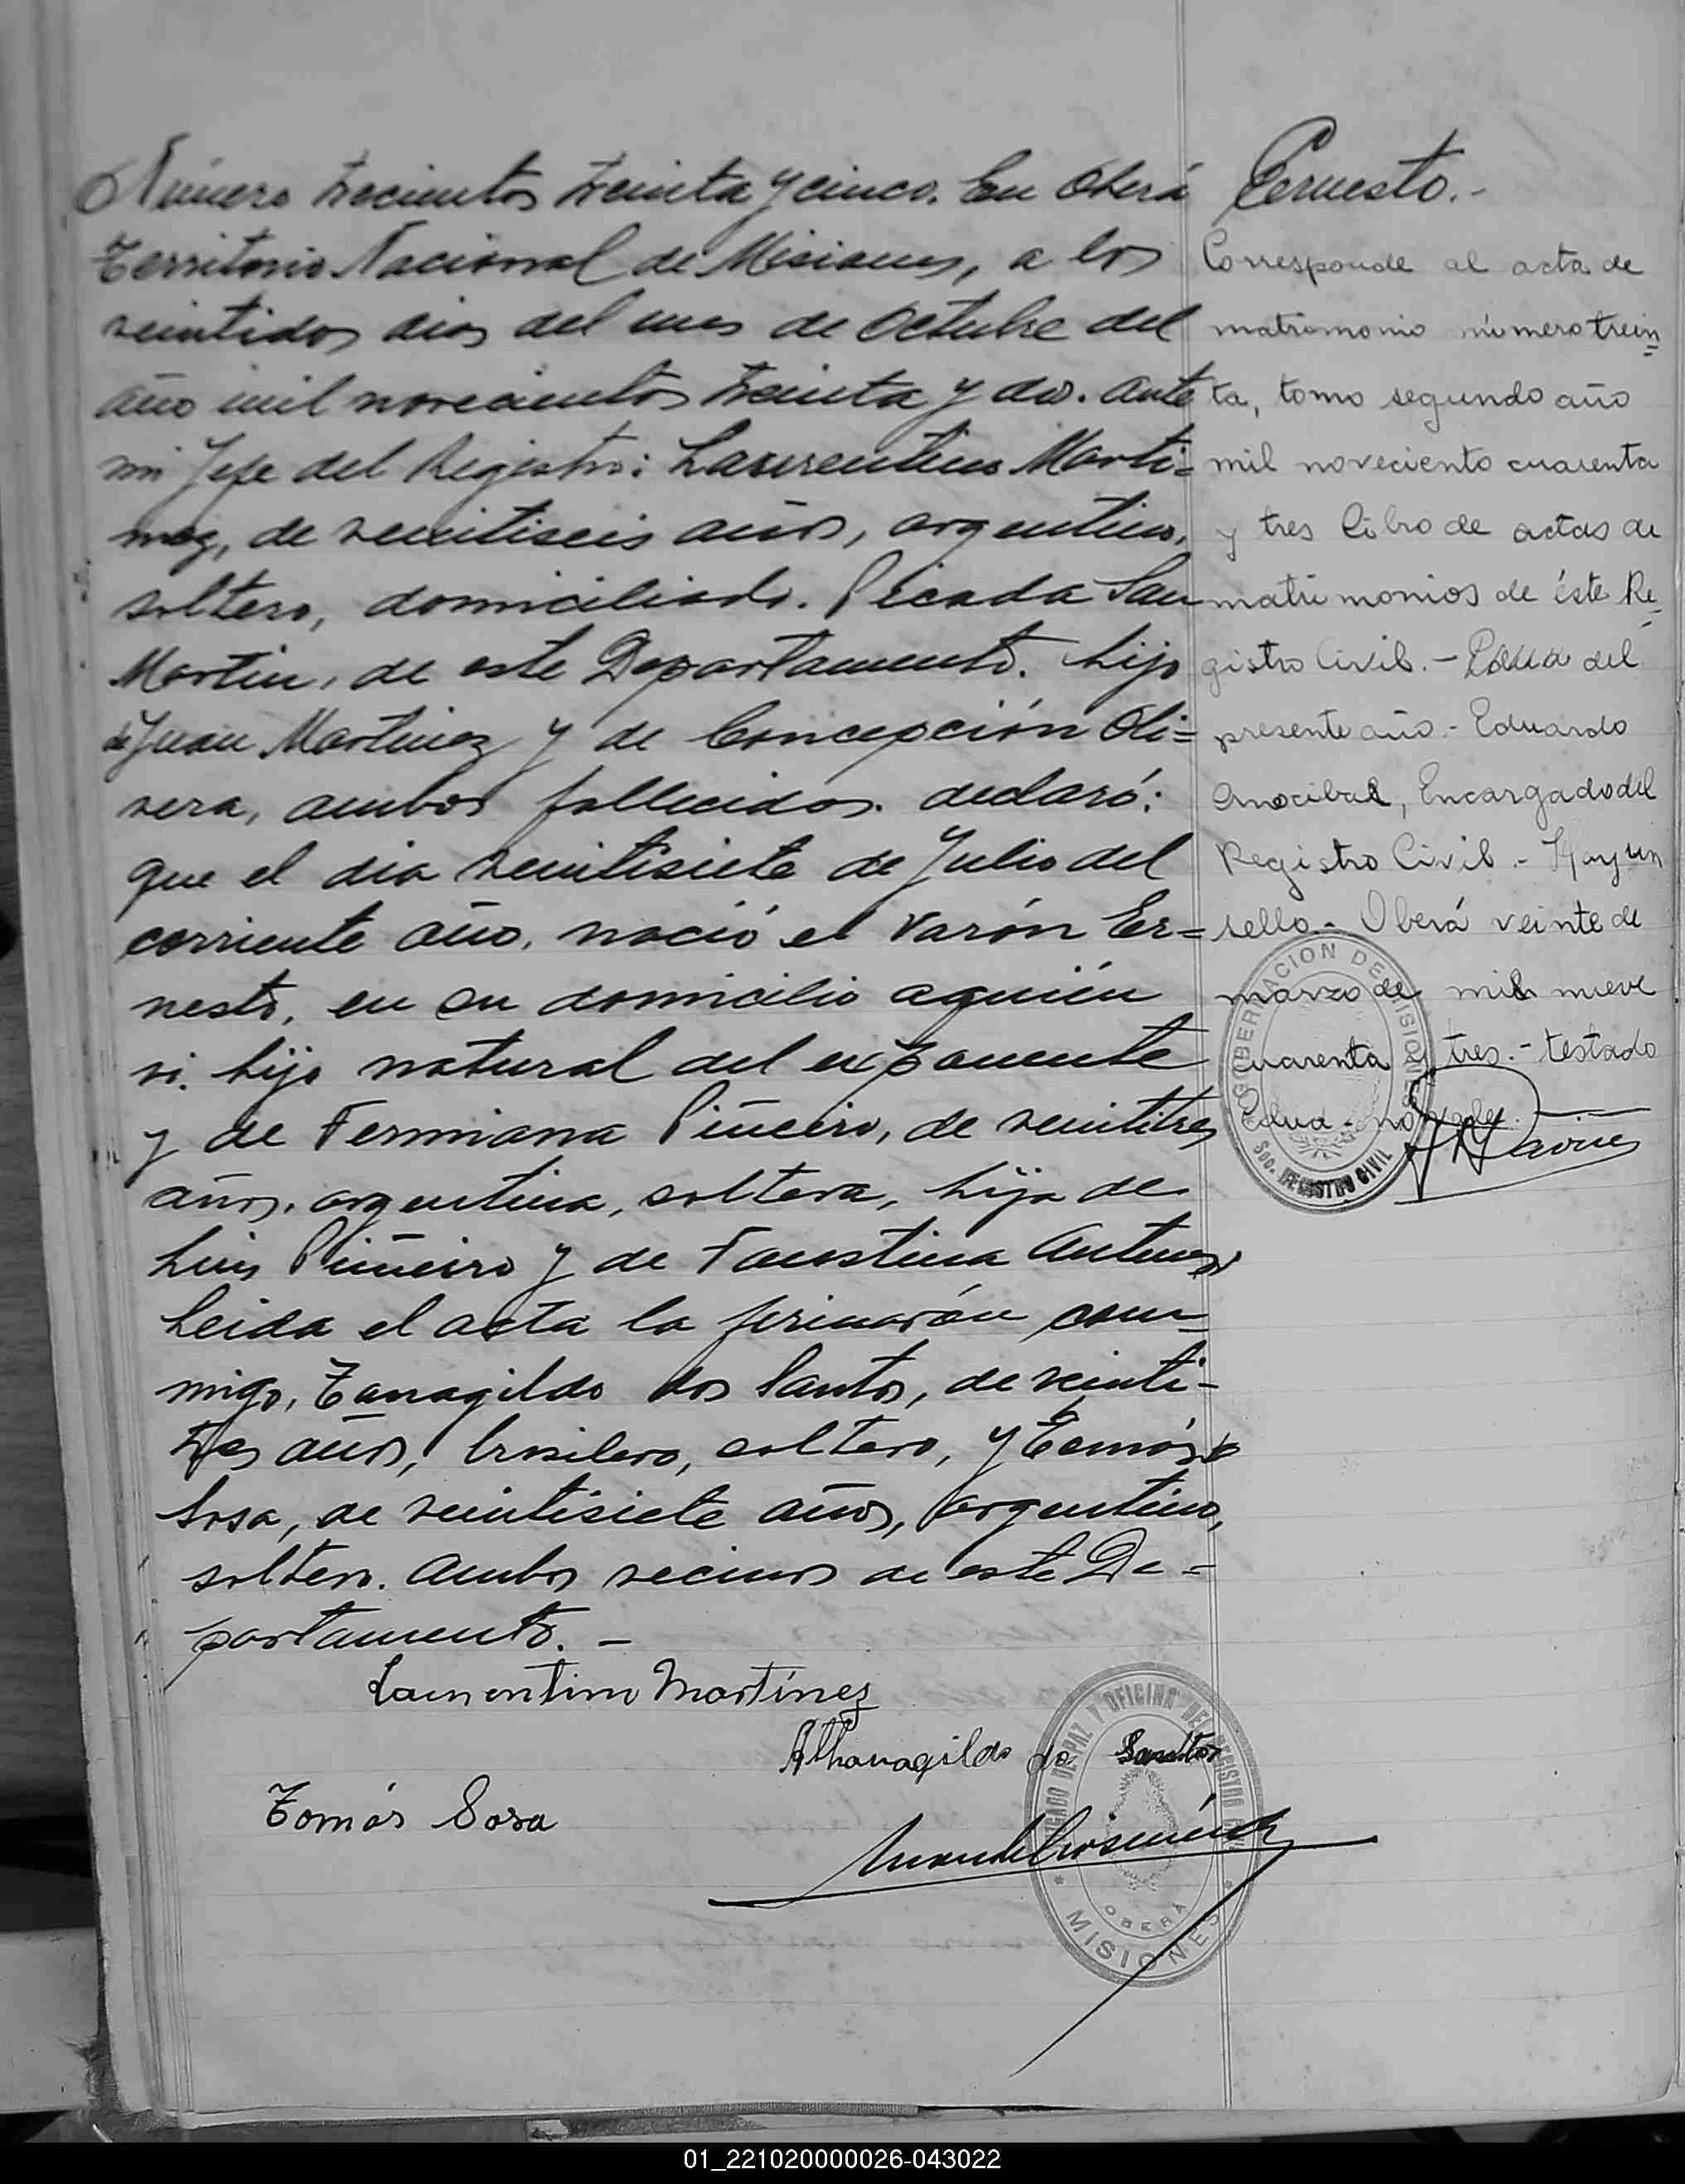 Número trecientos treinta y cinco. En Oberá
Territorio Nacional de Misiones, a los
veintidos dias del mes de Octubre del
año mil novecientos treinta y dos. Ante
mi Jefe del Registro: Laurentino Marti=
nez, de veintiseis años, argentino,
soltero, domiciliado. Picada San
Martin, de este Departamento. hijo
de Juan Martinez y de Concepción Oli=
vera, ambos fallecidos. declaró:
que el dia veintisiete de Julio del
corriente año, nació el varón Er=
nesto, en su domicilio aquién
vi. hijo natural del exponente
y de Fermiana Piñeiro, de veintitres
años, argentina, soltera, hija de
Luis Piñeiro y de Faustina Antunes,
Leida el acta la firmarón con=
migo, Tanagildo dos Santos, de veinti-
tres años, brasilero, soltero, y Tomás
Sosa, de veintisiete años, argentino,
soltero. Ambos vecinos de este De=
partamento. -
Laurentino Martínez
Athanagildo do Santos
Tomás Sosa
JUZGADO DE PAZ Y OFICINA DEL REGISTRO CIVIL
OBERÁ
* MISIONES *
Ernesto.-
Corresponde al acta de
matrimonio número trein=
ta, tomo segundo año
mil noveciento cuarenta
y tres Libro de actas de
matrimonios de éste Re=
gistro Civil. - del
presente año.- Eduardo
Encargado del
Registro Civil.- Hay un
sello.- Oberá veinte de
marzo de mil nueve
cuarenta y tres.- testado
Edua - no vale.
GOBERNACION DE MISIONES
Scc. REGISTRO CIVIL
01_221020000026-043022